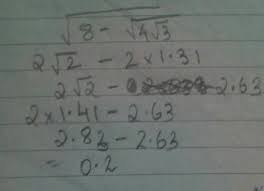 √(8 - √(4√3))
2√2 - 2×1.31
2√2 - 2.63
2×1.41 - 2.63
2.83 - 2.63
= 0.2